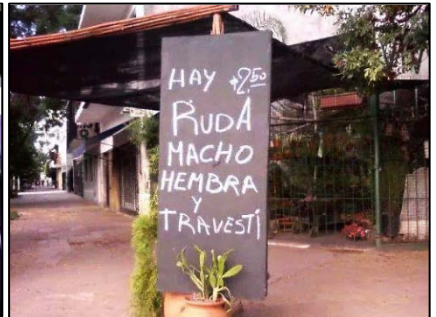 HAY $2,50
RUDA
MACHO
HEMBRA
Y
TRAVESTI